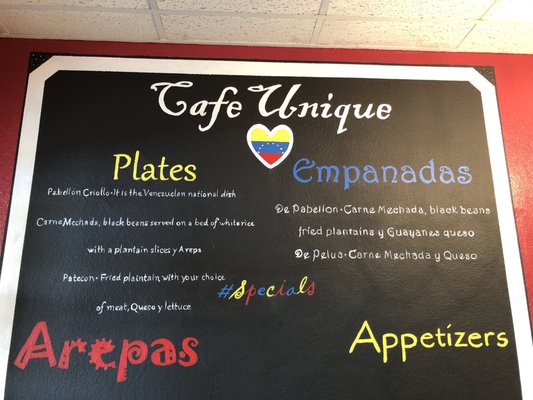 Cafe Unique
Plates
Pabellon Criollo • It is the Venezuelan national dish
Carne Mechada, black beans served on a bed of white rice
with a plantain slices y Arepa
Patecon • Fried plaintain with your choice
of meat, Queso y lettuce
Empanadas
De Pabellon • Carne Mechada, black beans
fried plantains y Guayanes queso
De Pelua • Carne Mechada y Queso
#Specials
Arepas
Appetizers